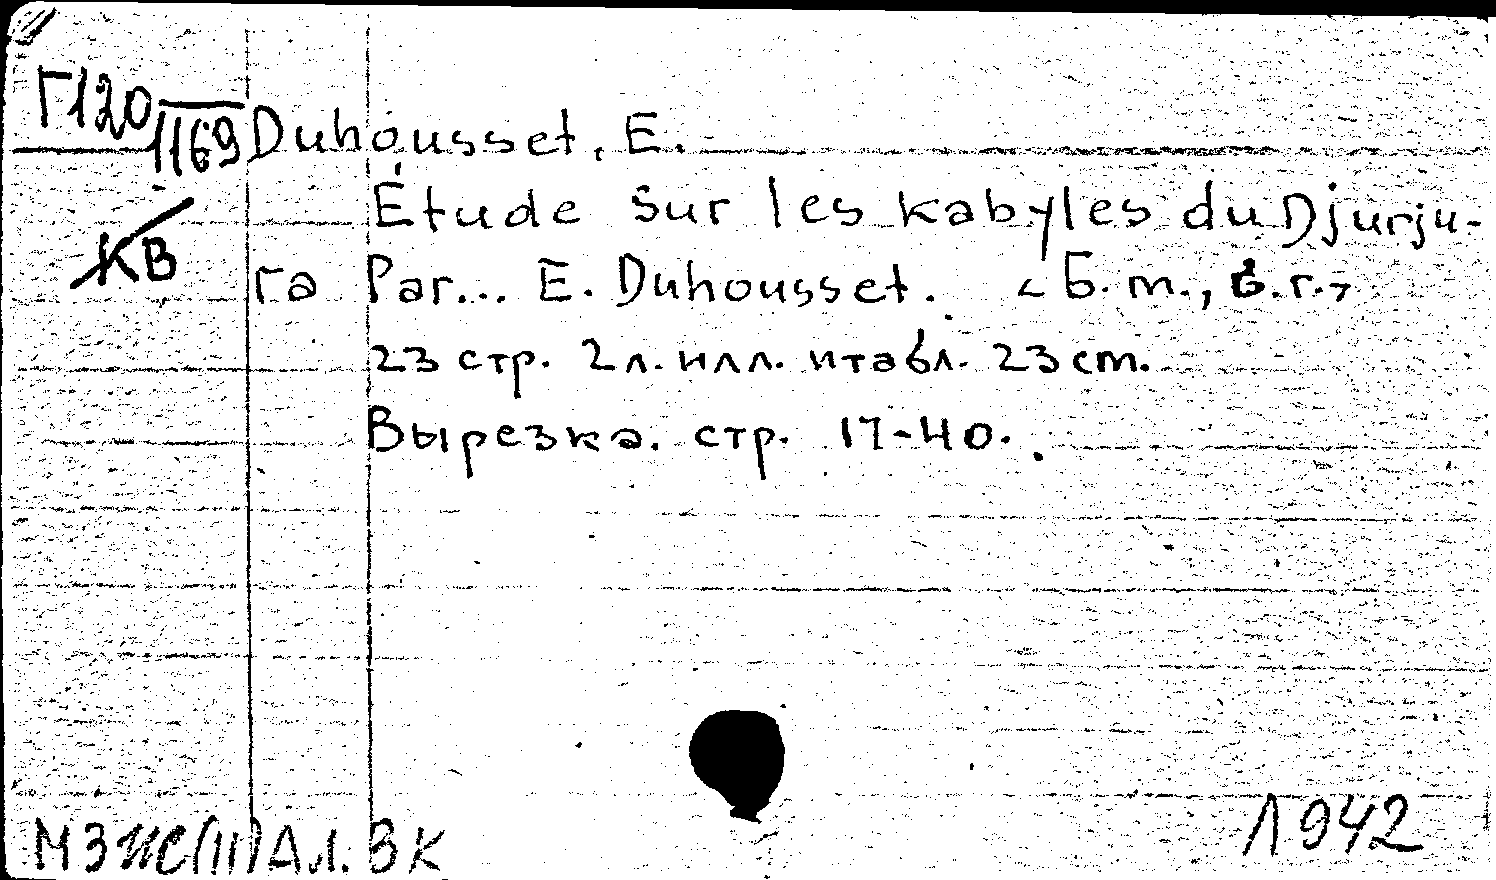 Г120
1169 Duhousset, E.
Étude sur les kabyles du Djurju-
КВ
ra Par... E. Duhousset. <Б.m., б.г.>
23 стр. 2л. илл. и табл. 23 cm.
Вырезка. стр. 17-40.
Л942
МЗЖ(III)Ал. ВК